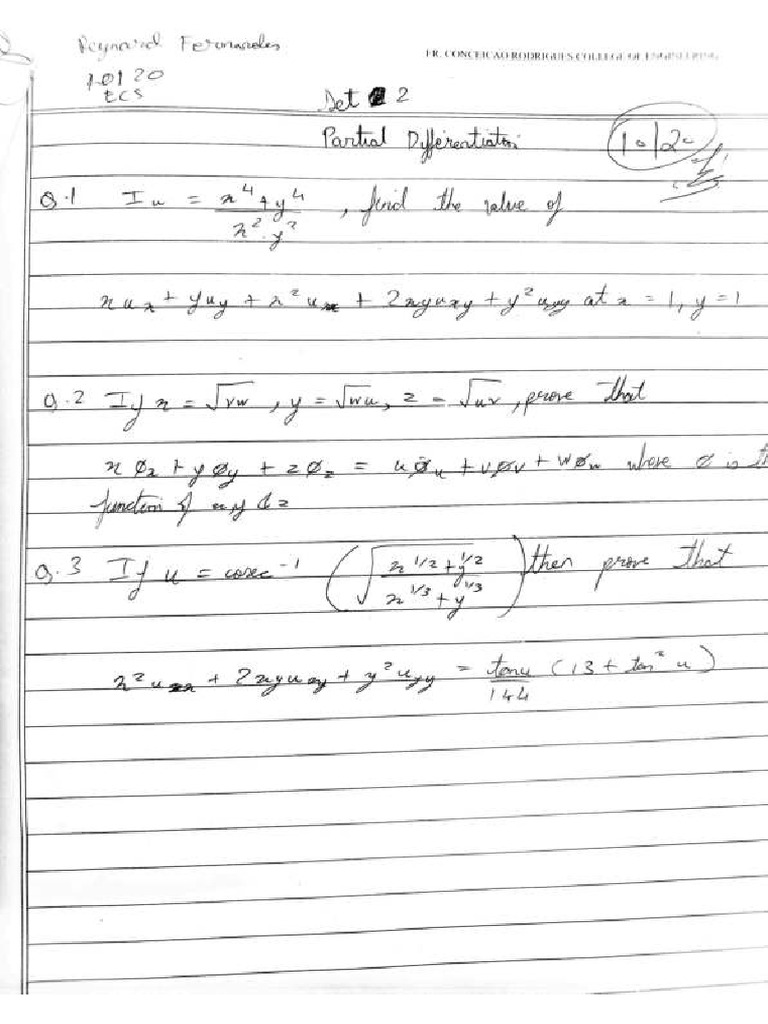 Reynard Fernandes
FR. CONCEICAO RODRIGUES COLLEGE OF ENGINEERING
10120
ECS
Set 2
Partial Differentiation
10/20
Q.1 I u = x⁴+y⁴ / x²·y² , find the value of
x uₓ + y u_y + x² uₓₓ + 2xy uₓ_y + y² u_yy at x = 1, y = 1
Q.2 If x = √vw , y = √wu, z = √uv, prove that
x øₓ + y ø_y + z ø_z = u ø_u + v ø_v + w ø_w where ø is th
function of x y & z
Q.3 If u = cosec⁻¹ (√(x^1/2 + y^1/2 / x^1/3 + y^1/3)) then prove that
x² uₓₓ + 2xy uₓ_y + y² u_yy = tan u / 144 (13 + tan² u)